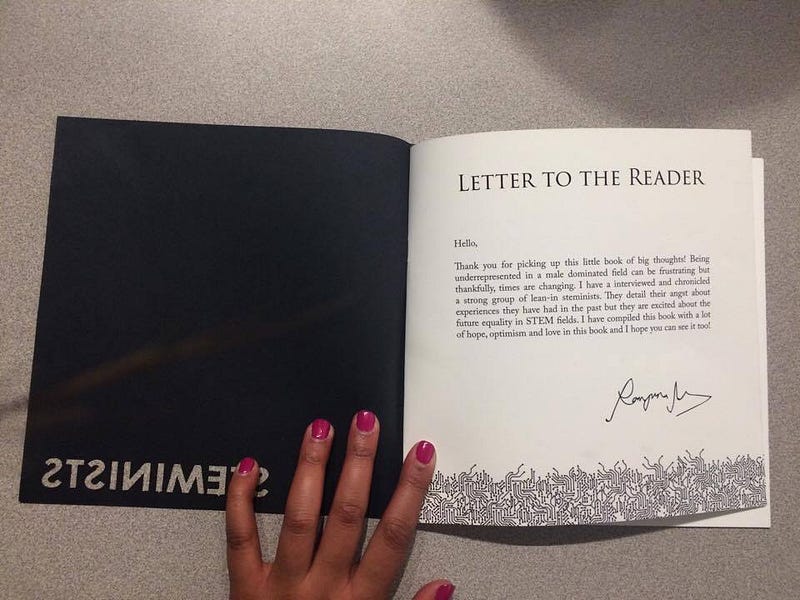 STEMINISTS
LETTER TO THE READER
Hello,
Thank you for picking up this little book of big thoughts! Being
underrepresented in a male dominated field can be frustrating but
thankfully, times are changing. I have a interviewed and chronicled
a strong group of lean-in steminists. They detail their angst about
experiences they have had in the past but they are excited about the
future equality in STEM fields. I have compiled this book with a lot
of hope, optimism and love in this book and I hope you can see it too!